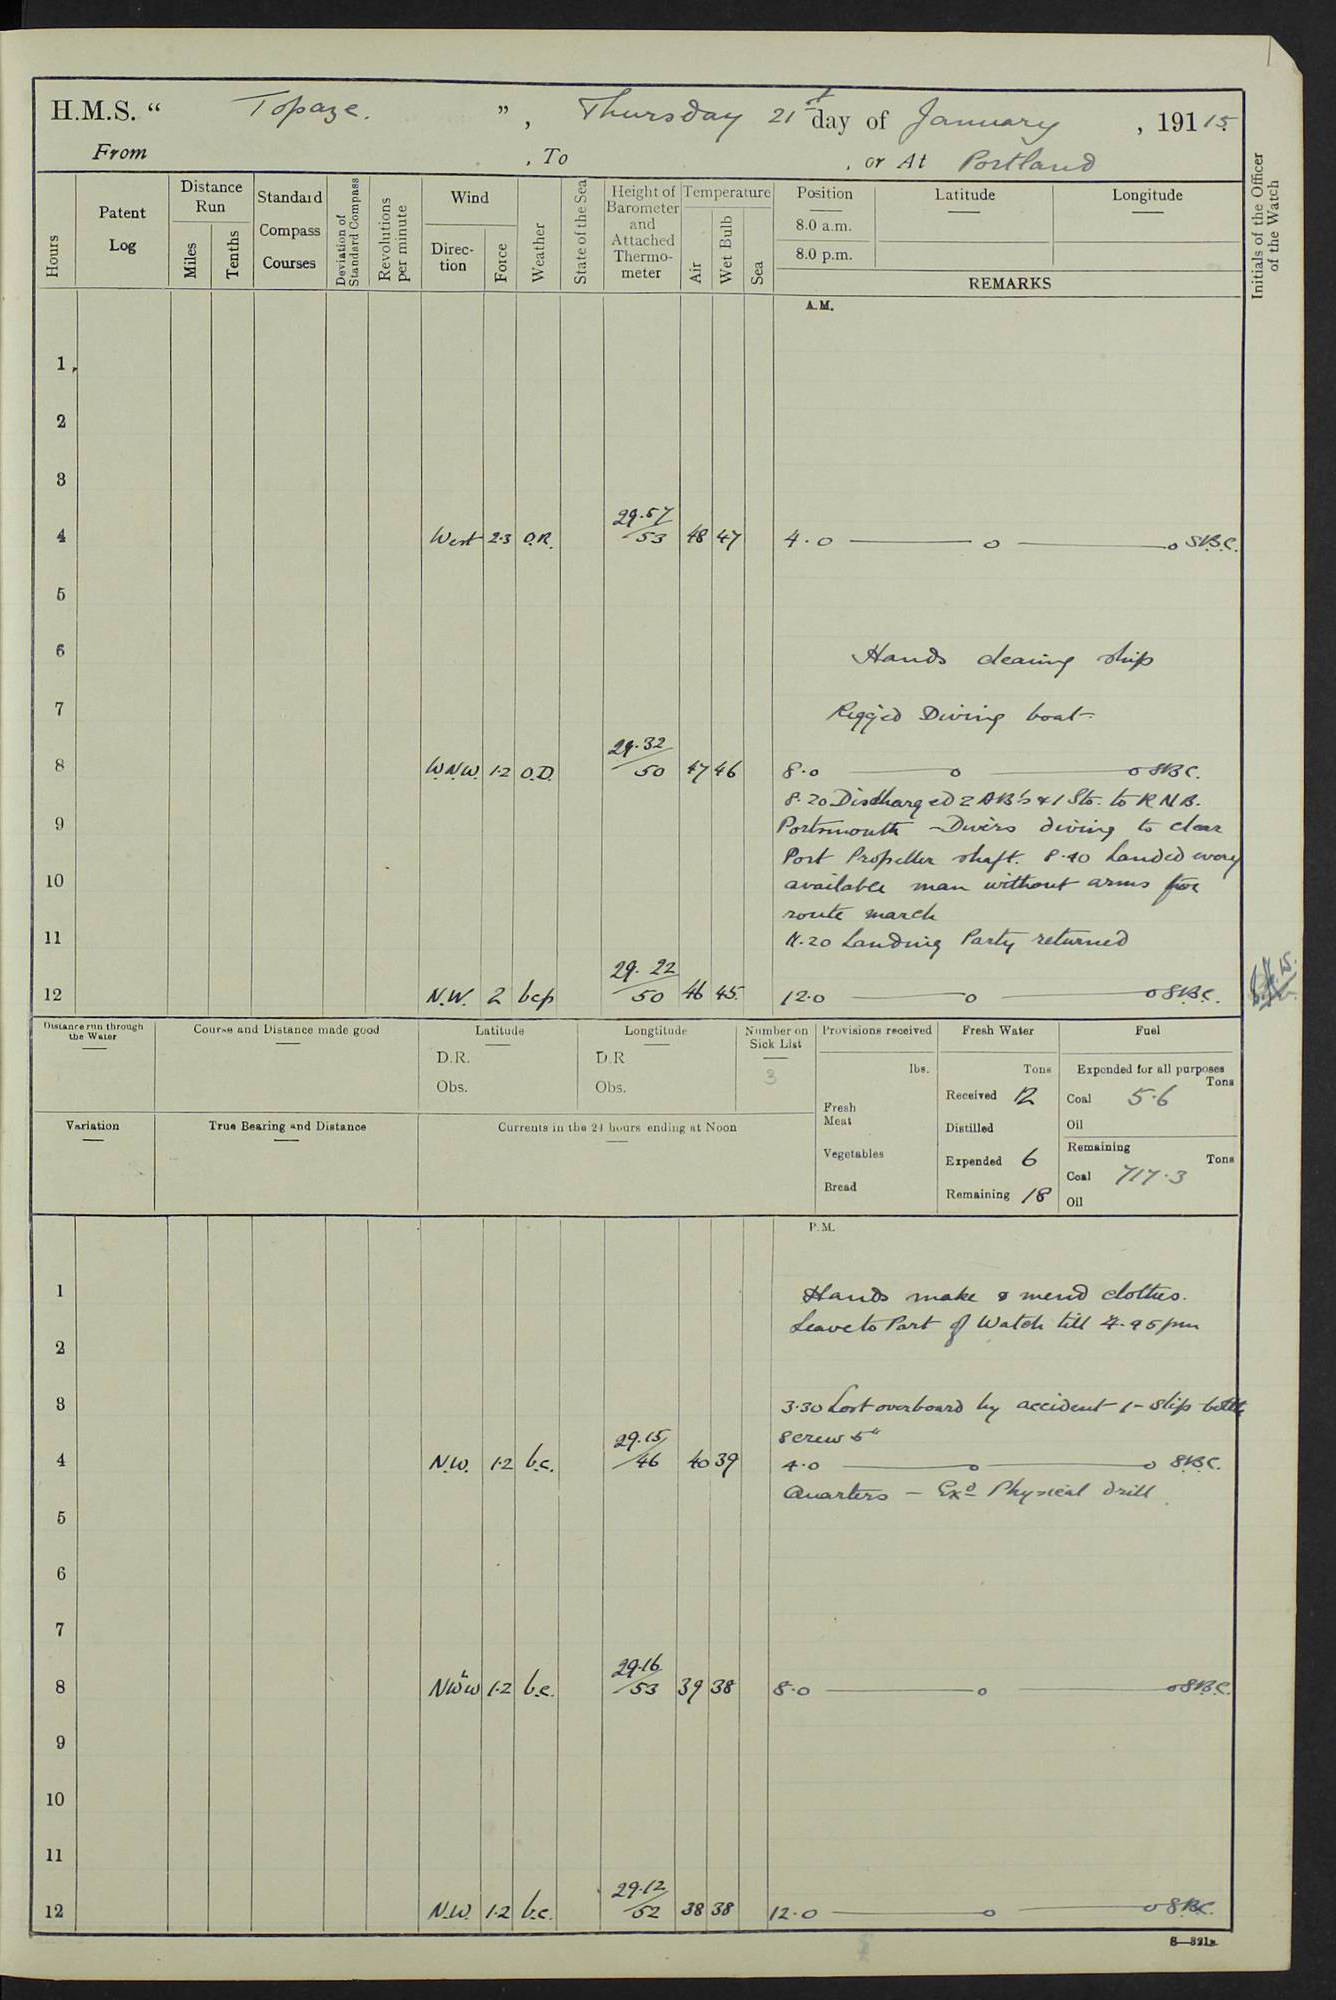 H.M.S. “ Topaze. ” , Thursday 21st day of January , 191 15.
From , To , or At Portland
Hours
Patent Log
Distance Run
Miles
Tenths
Standard Compass Courses
Deviation of Standard Compass
Revolutions per minute
Wind
Direc- tion
Force
Weather
State of the Sea
Height of Barometer and Attached Thermo- meter
Temperature
Air
Wet Bulb
Sea
Position
8.0 a.m.
8.0 p.m.
Latitude
Longitude
REMARKS
Initials of the Officer of the Watch
A.M.
1
2
3
4 West 2·3 O.R. 29·57/53 48 47 4·0 S.B.C.
5
6 Hands cleaning ship
7 Rigged Diving boat
8 W.N.W. 1·2 O.D. 29·32/50 47 46 8·0 S.B.C.
8·20 Discharged 2 AB's & 1 Sto. to R N B.
9 Portsmouth - Divers diving to clear
Port Propeller shaft. 8·40 Landed every
10 available man without arms for
route march
11 11·20 Landing Party returned
12 N.W. 2 bcp 29·22/50 46 45 12·0 S.B.C.
Distance run through the Water
Course and Distance made good
Latitude
D.R.
Obs.
Longtitude
D.R
Obs.
Number on Sick List
3
Provisions received
lbs.
Fresh Meat
Vegetables
Bread
Fresh Water
Tons
Received 12
Distilled
Expended 6
Remaining 18
Fuel
Expended for all purposes
Tons
Coal 5·6
Oil
Remaining
Tons
Coal 717·3
Oil
Variation
True Bearing and Distance
Currents in the 24 hours ending at Noon
P.M.
1 Hands make & mend clothes.
Leave to Part of Watch till 4·45 pm
2
3 3·30 Lost overboard by accident 1- Slip bottle
screw 5"
4 N.W. 1·2 b.c. 29·15/46 40 39 4·0 S.B.C.
Quarters - Exd Physical drill
5
6
7
8 NW"W 1·2 b.c. 29·16/53 39 38 8·0 S.B.C.
9
10
11
12 N.W. 1·2 b.c. 29·12/52 38 38 12·0 S.B.C.
S—321a